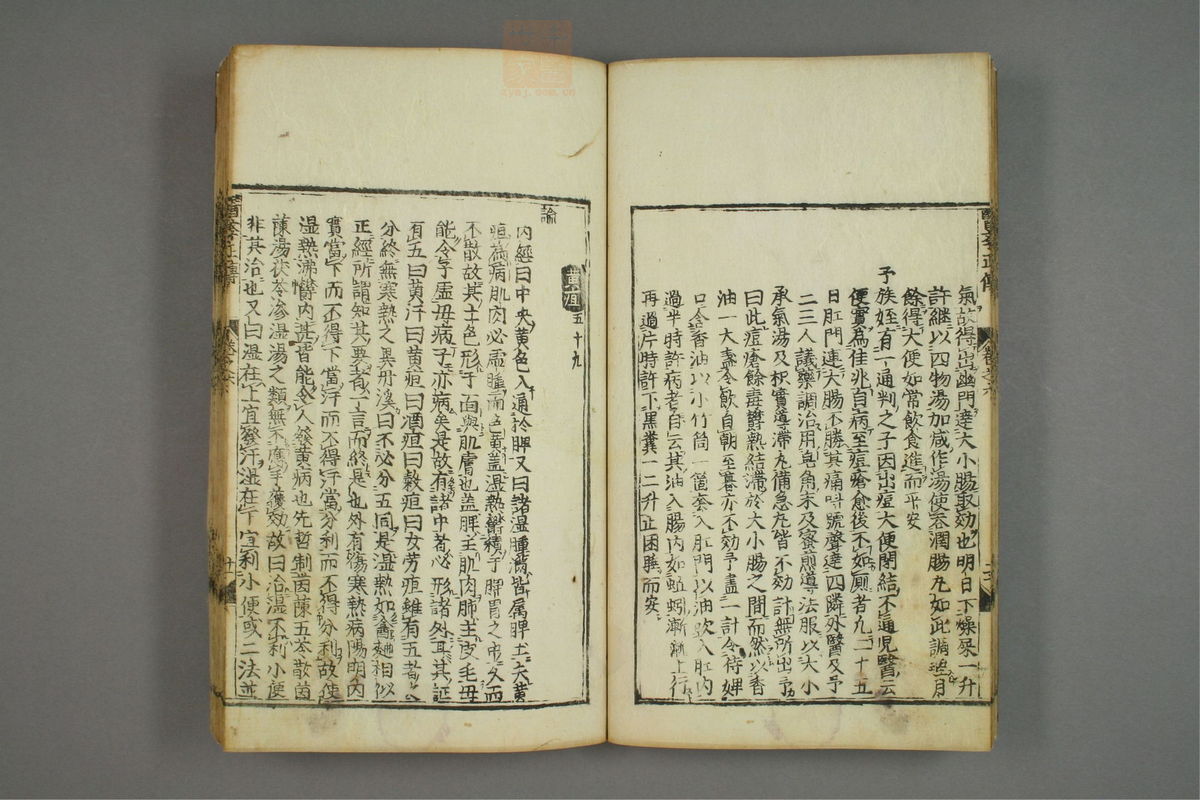 氣故得出幽門達大小腸取効也明日下燥屎一升
許繼以四物湯加减作湯使吞潤腸丸如此調理月
餘得大便如常飲食進而平安
予族姪有一通判之子因出痘大便閉結不通兒醫云
便實為佳兆自病至痘瘡愈後不如厠者凡二十五
日肛門連大腸不勝其痛呌號聲達四隣外醫及予
二三人議藥調治用皂角末及蜜煎導法服以大小
承氣湯及枳實導滯丸備急丸皆不効計無所出予
曰此痘瘡餘毒欝熱結滯於大小腸之間而然以香
油一大盞令飲自朝至暮亦不効予畫一計令侍婢
口含香油以小竹筒一箇套入肛門以油吹入肛內
過半時許病者自云其油入腸內如蚯蚓漸漸上行
再過片時許下黑糞一二升止困睡而安
醫學正傳
卷之六
黃疸 五十九
論
內經曰中央黃色入通於脾又曰諸濕腫滿皆属脾土夫黃
疸為病肌肉必虛腫而色黃盖濕熱欝積于脾胃之中久而
不散故其土色形于面與肌膚也盖脾主肌肉肺主皮毛母
能令子虛母病子亦病矣是故有諸中者必形諸外耳其証
有五曰黃汗曰黃疸曰酒疸曰穀疸曰女勞疸雖有五者之
分終無寒熱之異丹溪曰不必分五同是濕熱如盦麯相似
正經所謂知其要者一言而終是也外有傷寒熱病陽明內
實當下而不得下當汗而不得汗當分利而不得分利故使
濕熱沸欝內甚皆能令人發黃病也先哲制茵蔯五苓散茵
蔯湯茯苓滲濕湯之類無不應手獲効故曰治濕不利小便
非其治也又曰濕在上宜發汗濕在下宜利小便或二法並
醫學正傳
卷之六